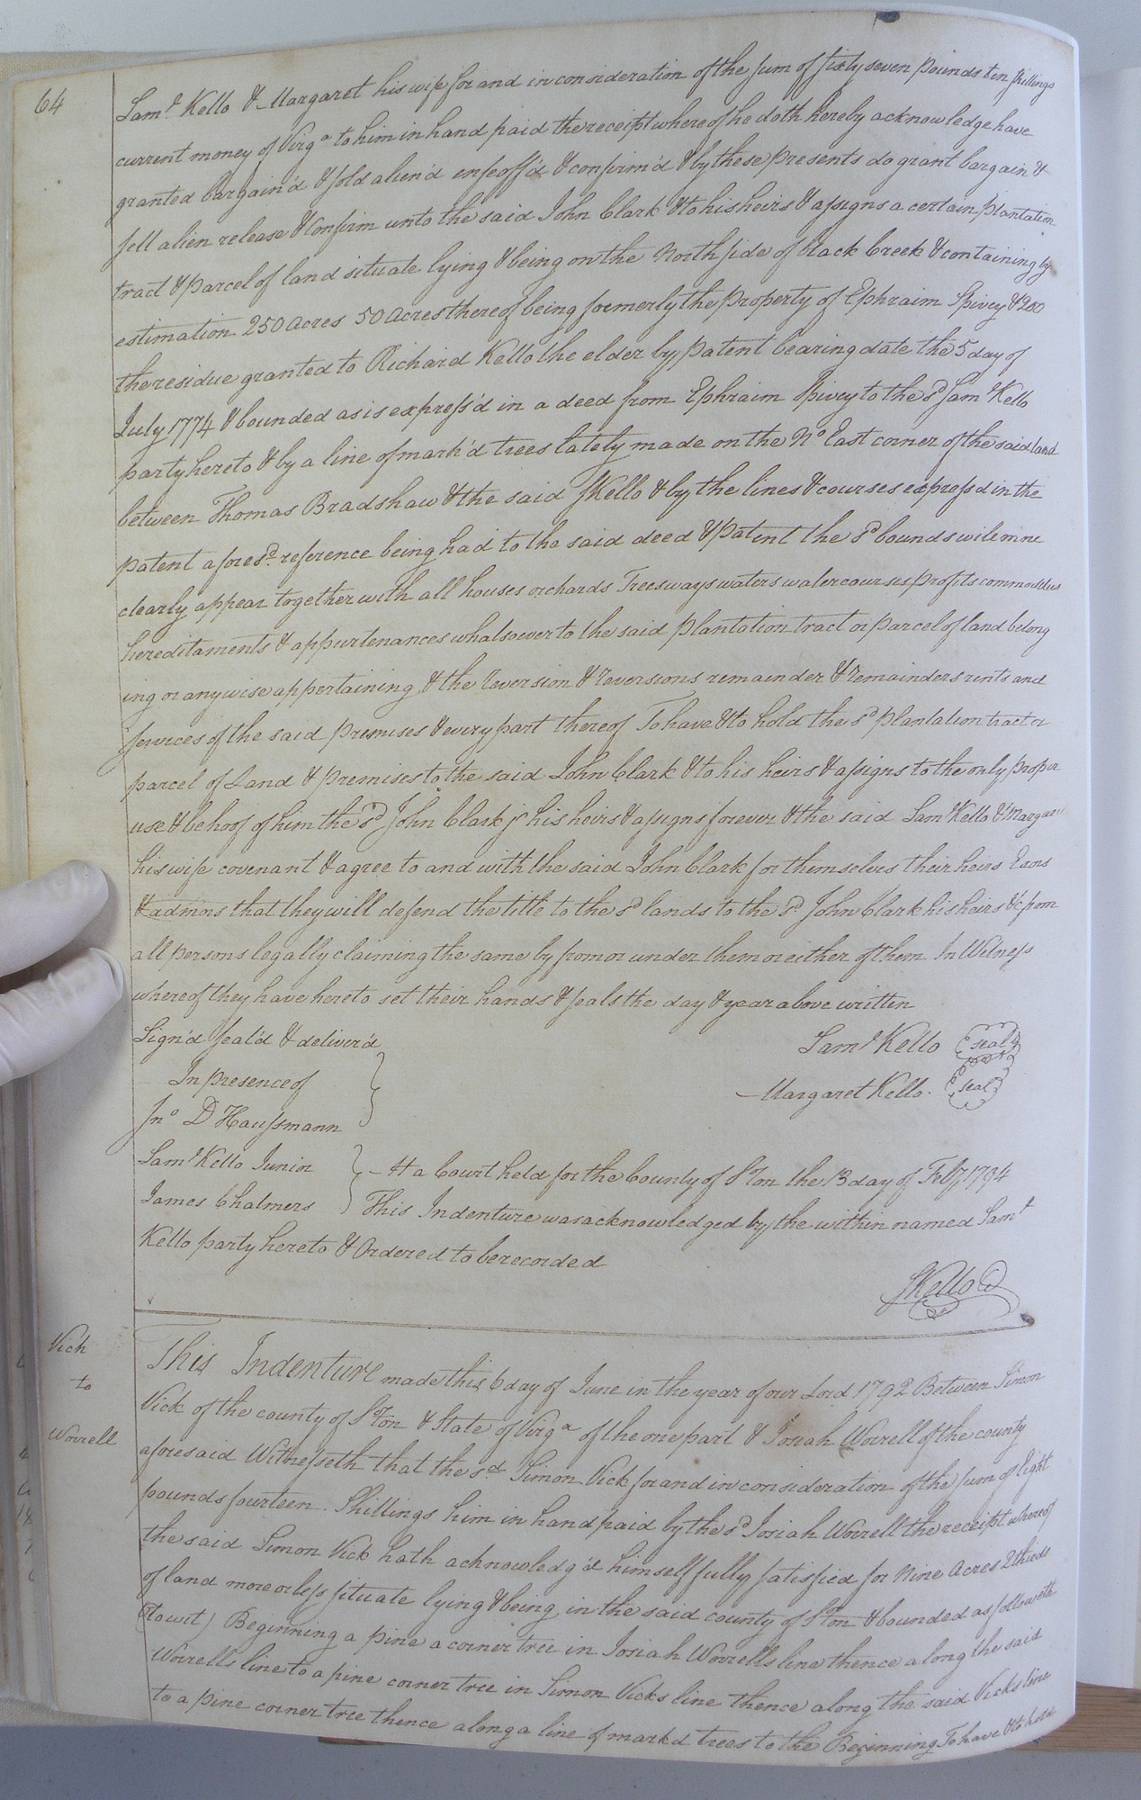 64
Saml Kello & Margaret his wife for and in consideration of the sum of sixty seven pounds ten shillings
current money of Virga to him in hand paid the receipt whereof he doth hereby acknowledge have
granted bargain'd & sold alien'd enfeoff'd & confirm'd & by these presents do grant bargain &
sell alien release & Confirm unto the said John Clark & to his heirs & assigns a certain plantation
tract & parcel of land situate lying & being on the North side of black Creek & containing by
estimation 250 acres 50 acres thereof being formerly the property of Ephraim Spivey & 200
the residue granted to Richard Kello the elder by patent bearing date the 5 day of
July 1774 & bounded as is express'd in a deed from Ephraim Spivey to the sd Saml Kello
party hereto & by a line of mark'd trees lately made on the No East corner of the said land
between Thomas Bradshaw & the said SKello & by the lines & courses expressd in the
patent aforesd. reference being had to the said deed & patent the sd bounds will
clearly appear together with all houses orchards Trees ways waters watercourses profits
hereditaments & appurtenances whatsoever to the said plantation tract or parcel of land belong
ing or anywise appertaining & the reversion & reversions remainder & remainders rents and
services of the said premises & every part thereof To have & to hold the sd plantation tract or
parcel of Land & premises to the said John Clark & to his heirs & assigns to the only
use & behoof of him the sd John Clark jr his heirs & assigns forever & the said Saml Kello & Margaret
his wife covenant & agree to and with the said John Clark for themselves their heirs Exors
& admors that they will defend the title to the sd lands to the sd John Clark his heirs &c from
all persons legally claiming the same by from or under them or either of them In Witness
whereof they have hereto set their hands & seals the day & year above written
Sign'd seal'd & deliver'd
In presence of
Jno D Haussmann
Saml Kello (seal)
Margaret Kello. (seal)
Saml Kello Junir
James Chalmers
At a Court held for the County of S'Ton the 13 day of Feby 1794
This Indenture was acknowledged by the within named Saml
Kello party hereto & Ordered to be recorded
SKello
Vick
to
Worrell
This Indenture made this 6 day of June in the year of our Lord 1792 Between Simon
Vick of the county of S'Ton & State of Virga of the one part & Josiah Worrell of the county
aforesaid Witnesseth that the sd Simon Vick for and in consideration of the sum of Eight
pounds fourteen Shillings him in hand paid by the sd Josiah Worrell the receipt whereof
the said Simon Vick hath acknowledg'd himself fully satisfied for Nine Acres 2 thirds
of land more or less situate lying & being in the said county of S'Ton & bounded as followeth
(to wit) Beginning a pine a corner tree in Josiah Worrells line thence along the said
Worrells line to a pine corner tree in Simon Vicks line thence along the said Vicks line
to a pine corner tree thence along a line of markd trees to the Beginning To have & to hold